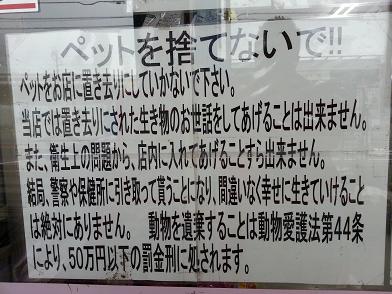 ペットを捨てないで!!
ペットをお店に置き去りにしていかないで下さい。
当店では置き去りにされた生き物のお世話をしてあげることは出来ません。
また、衛生上の問題から、店内に入れてあげることすら出来ません。
結局、警察や保健所に引き取って貰うことになり、間違いなく幸せに生きていけること
は絶対にありません。 動物を遺棄することは動物愛護法第44条
により、50万円以下の罰金刑に処されます。